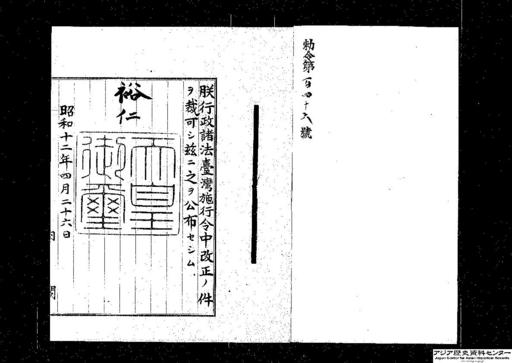 勅令第百四十六號
朕行政諸法臺灣施行令中改正ノ件
ヲ裁可シ茲ニ之ヲ公布セシム
裕仁
天皇
御璽
昭和十二年四月二十六日
内閣
アジア歴史資料センター
Japan Center for Asian Historical Records